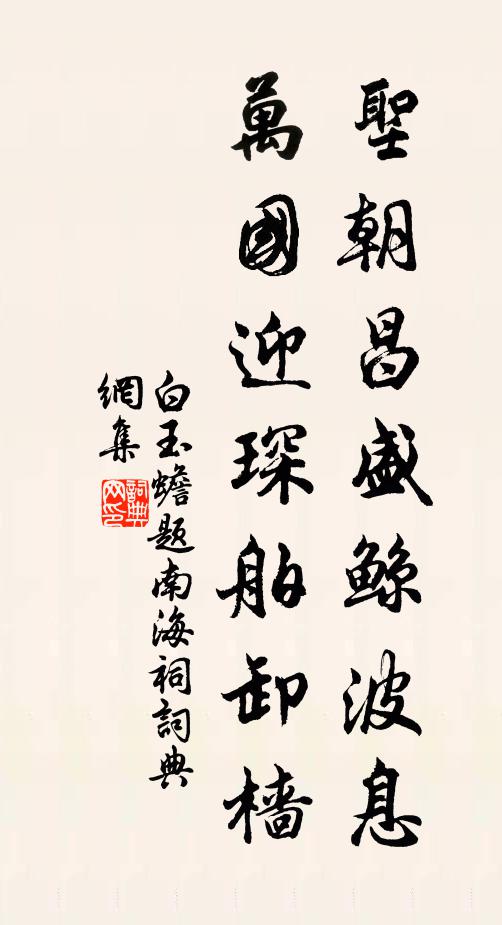 聖朝昌盛鯨波息
萬國迎琛舶卸檣
白玉蟾題南海祠詞典
網集
詞典網印